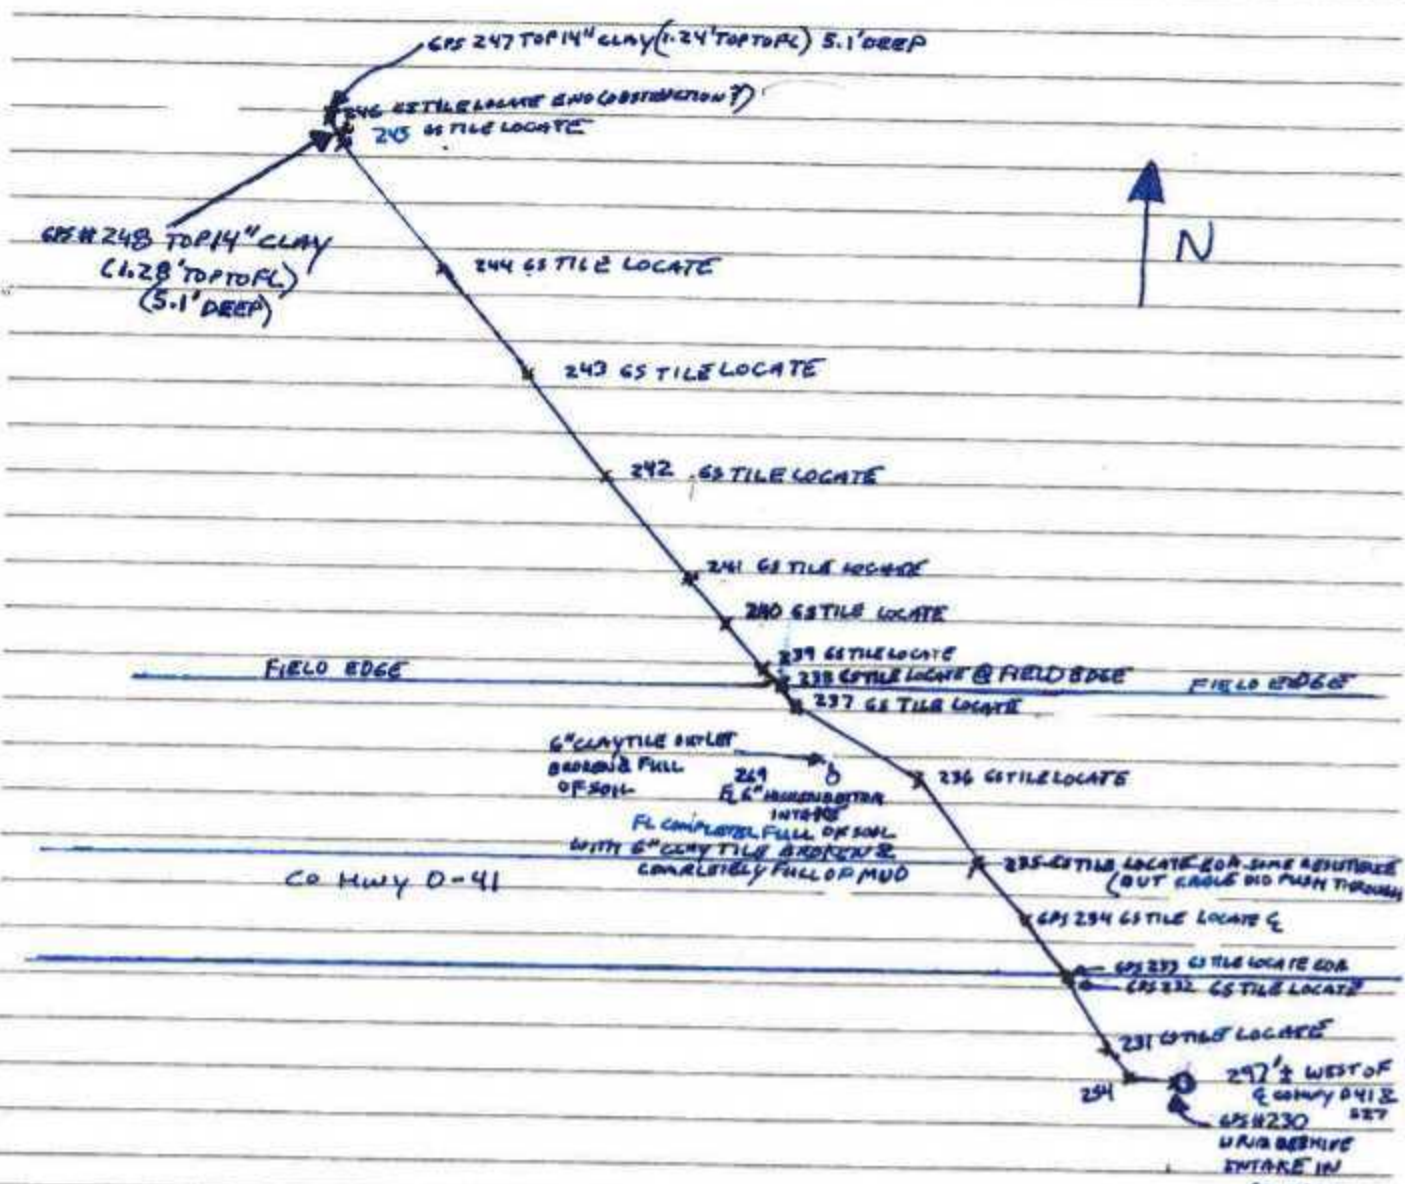 GPS 247 TOP 14" CLAY (1.24' TOP TO FL) 5.1' DEEP
246 GS TILE LOCATE END (OBSTRUCTION?)
245 GS TILE LOCATE
GPS # 248 TOP 14" CLAY
(1.28' TOP TO FL)
(5.1' DEEP)
N
244 GS TILE LOCATE
243 GS TILE LOCATE
242 GS TILE LOCATE
241 GS TILE LOCATE
240 GS TILE LOCATE
239 GS TILE LOCATE
FIELD EDGE
238 GS TILE LOCATE @ FIELD EDGE
FIELD EDGE
237 GS TILE LOCATE
6" CLAY TILE OUTLET
BROKEN & FULL
OF SOIL
269
FL 6" HICKENBOTTOM
INTAKE
236 GS TILE LOCATE
FL COMPLETEL FULL OF SOIL
WITH 6" CLAY TILE BROKEN &
COMPLETELY FULL OF MUD
235 GS TILE LOCATE EOR SOME RESISTANCE
(BUT CABLE DID PUSH THROUGH
CO HWY D-41
GPS 234 GS TILE LOCATE ℄
GPS 233 GS TILE LOCATE EOR
GPS 232 GS TILE LOCATE
231 GS TILE LOCATE
254
297'± WEST OF
℄ CO HWY D41 &
S27
GPS # 230
BEEHIVE
INTAKE IN